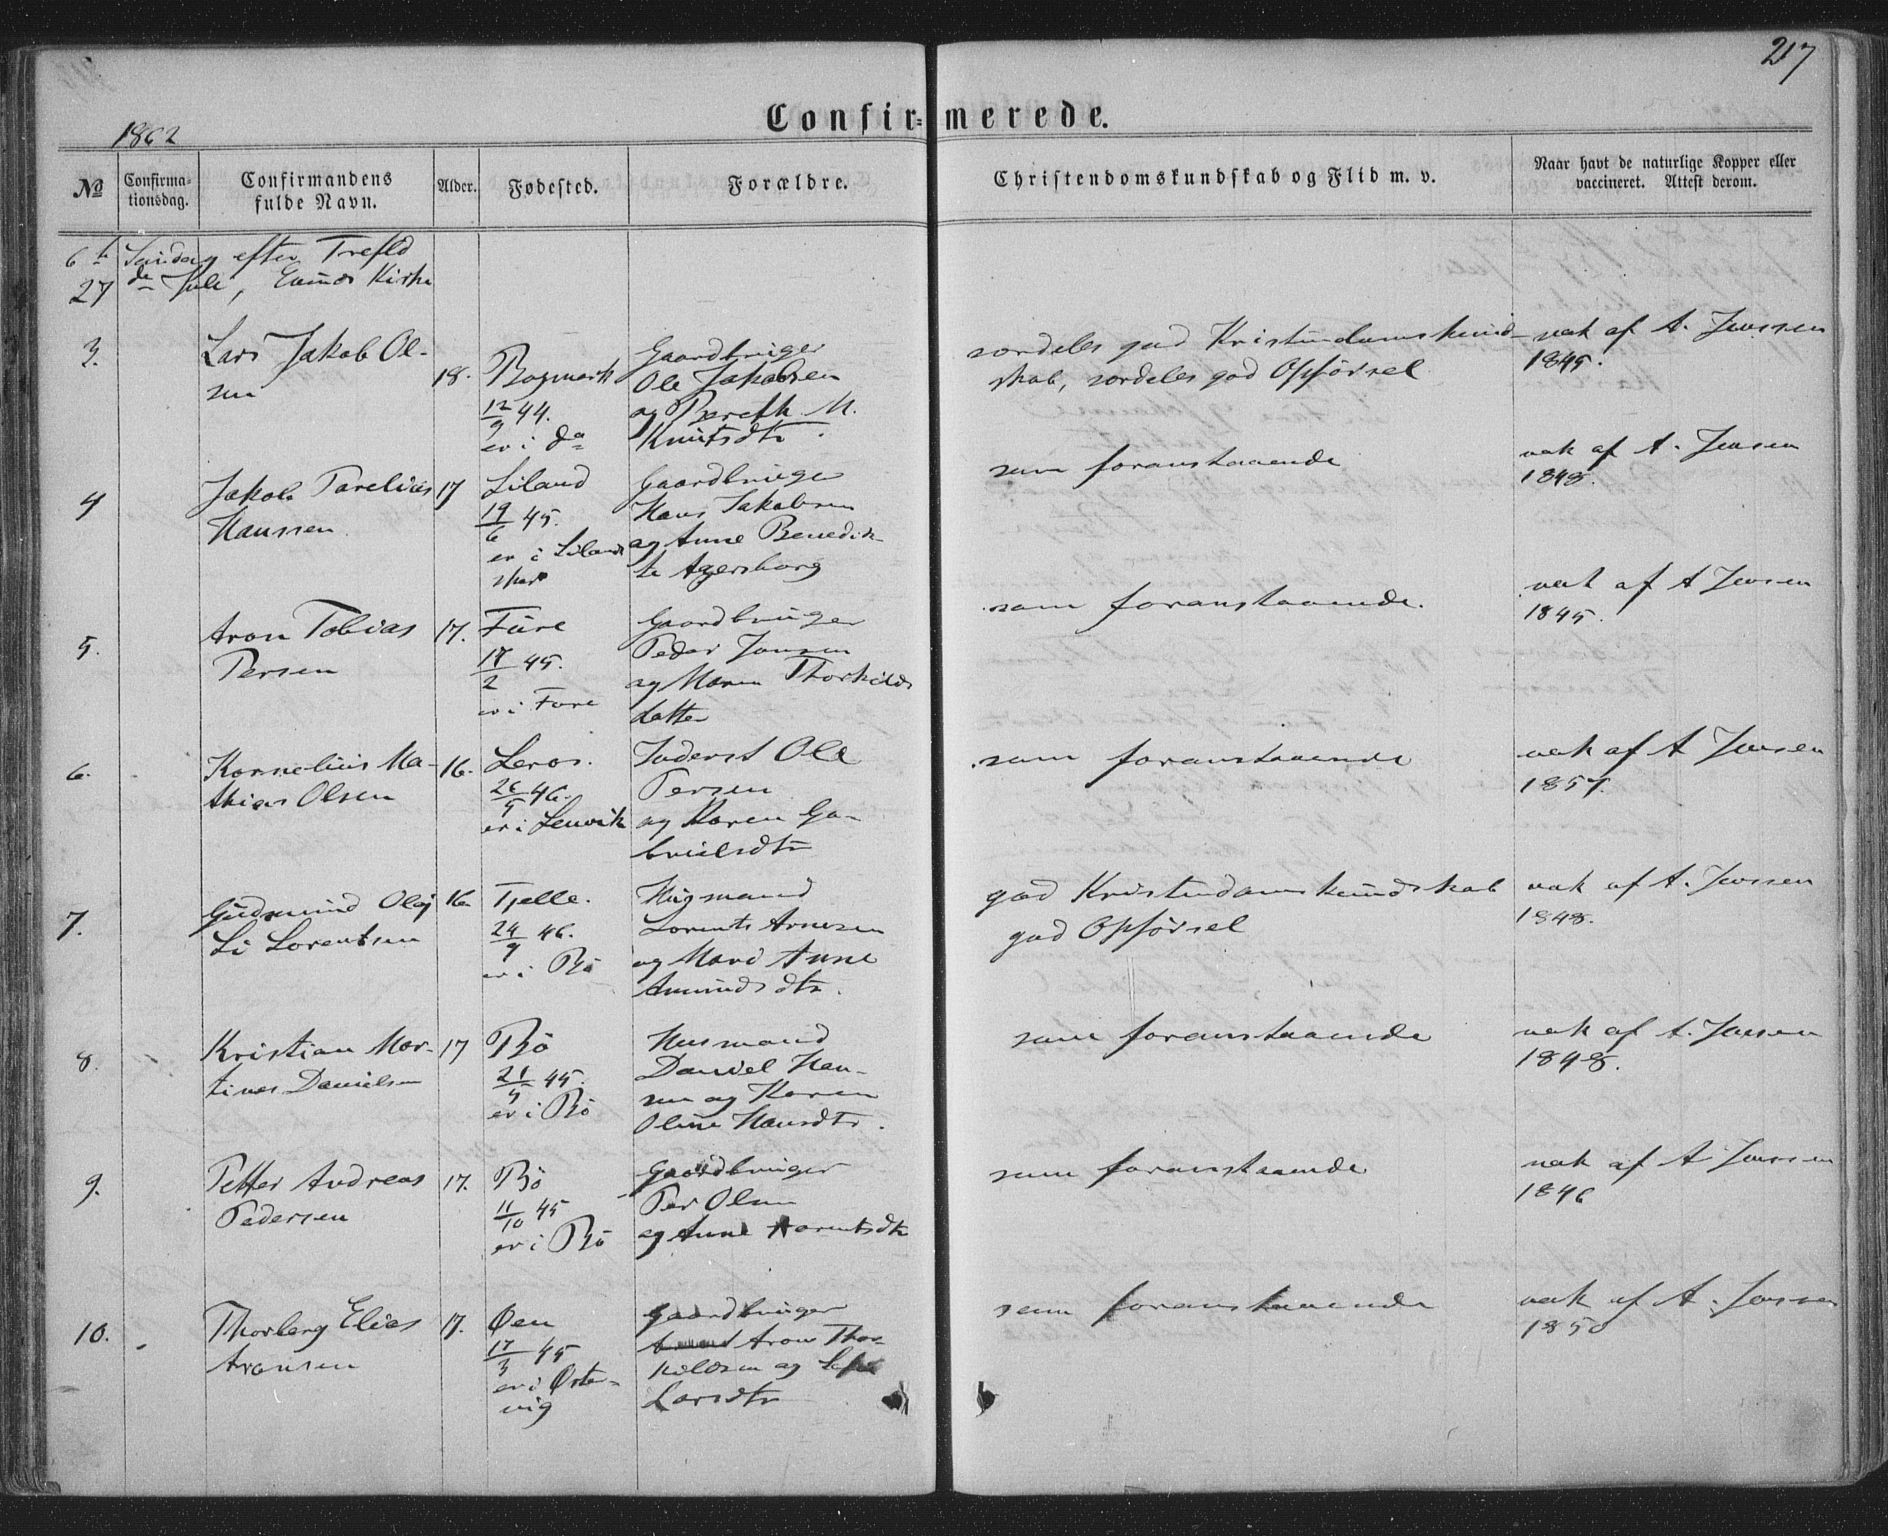 217
Confirmerede.
1862
No
Confirmationsdag.
Confirmandens fulde Navn.
Alder.
Fødested.
Forældre.
Christendomskundskab og Flid m. v.
Naar havt de naturlige Kopper eller vaccineret. Attest derom.
6te Søndag efter Trefld
27de Juli, Kirke
3.
Lars Jakob Ol-
sen
18.
Bogmark
12/9 44.
er i do
Gaardbruger
Ole Jakobsen
og Bereth M.
Knutsdtr.
sordeles god Kristendomskund-
skab, sordeles god Opførsel
vak af A. Jenssen
1845.
4
Jakob Parelius
Hanssen
17
Liland
19/6 45.
er i Lilands
Gaardbruger
Hans Jakobsen
og Anne Benedik-
te Agersborg
som foranstaaende
vak af A. Jensen
1848.
5.
Aron Tobias
Persen
17.
Fure
18/2 45.
er i Fure
Gaardbruger
Peder Jonsen
og Maren Thorkilds
datter
som foranstaaende.
vak af A Jensen
1845.
6.
Kornelius Ma-
thias Olsen
16.
Leros.
26/5 46.
er i Lenvik
Inderst Ole
Persen
og Karen Ga-
brielsdtr
som foranstaaende
vak af A Jensen
1857.
7.
Gudmund Olaj
Li Lorentsen
16
Tjelle.
24/9 46.
er i Bö
Husmand
Lorents Arnesen
og Mari Anne
Amundsdtr.
god Kristendomskundskab
god Opførsel
vak af A. Jenssen
1848.
8.
Kristian Mar-
tines Danielsen
17
Bö
21/5 45.
er i Bö
Husmand
Daniel Han-
sen og Karen
Oline Hansdtr.
som foranstaaende
vak af A. Jensen
1848.
9.
Petter Andreas
Pedersen
17.
Bö
11/10 45
er i Bö
Gaardbruger
Per Olsen
og Anne Arentsdtr
som foranstaaende
vak af A Jenssen
1846
10.
Thorberg Elias
Aronsen
17.
Øen
17/3 45
er i Øster-
vig
Gaardbruger
Aron Thor-
kildsen og
Larsdtr
som foranstaaende
vak af A. Jenssen
1850